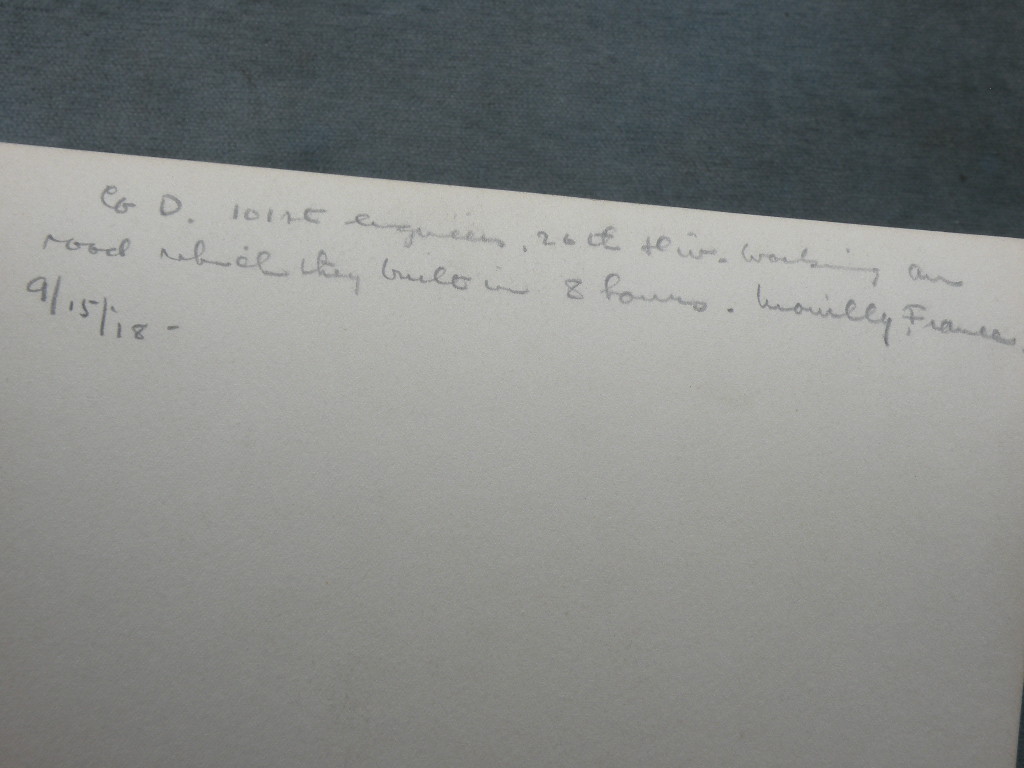 Co D. 101st engineers, 26th Div. working on
road which they built in 8 hours. Mouilly, France.
9/15/18 -